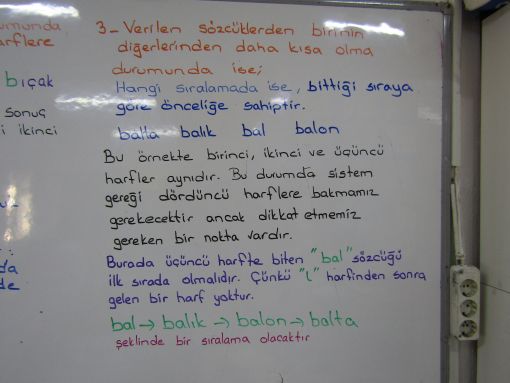 umunda,
arflere
bıçak
sonuç
i ikinci
da
de
3- Verilen sözcüklerden birinin
diğerlerinden daha kısa olma
durumunda ise;
Hangi sıralamada ise, bittiği sıraya
göre önceliğe sahiptir.
balta balık bal balon
Bu örnekte birinci, ikinci ve üçüncü
harfler aynıdır. Bu durumda sistem
gereği dördüncü harflere bakmamız
gerekecektir ancak dikkat etmemiz
gereken bir nokta vardır.
Burada üçüncü harfte biten "bal" sözcüğü
ilk sırada olmalıdır. Çünkü "L" harfinden sonra
gelen bir harf yoktur.
bal → balık → balon → balta
şeklinde bir sıralama olacaktır